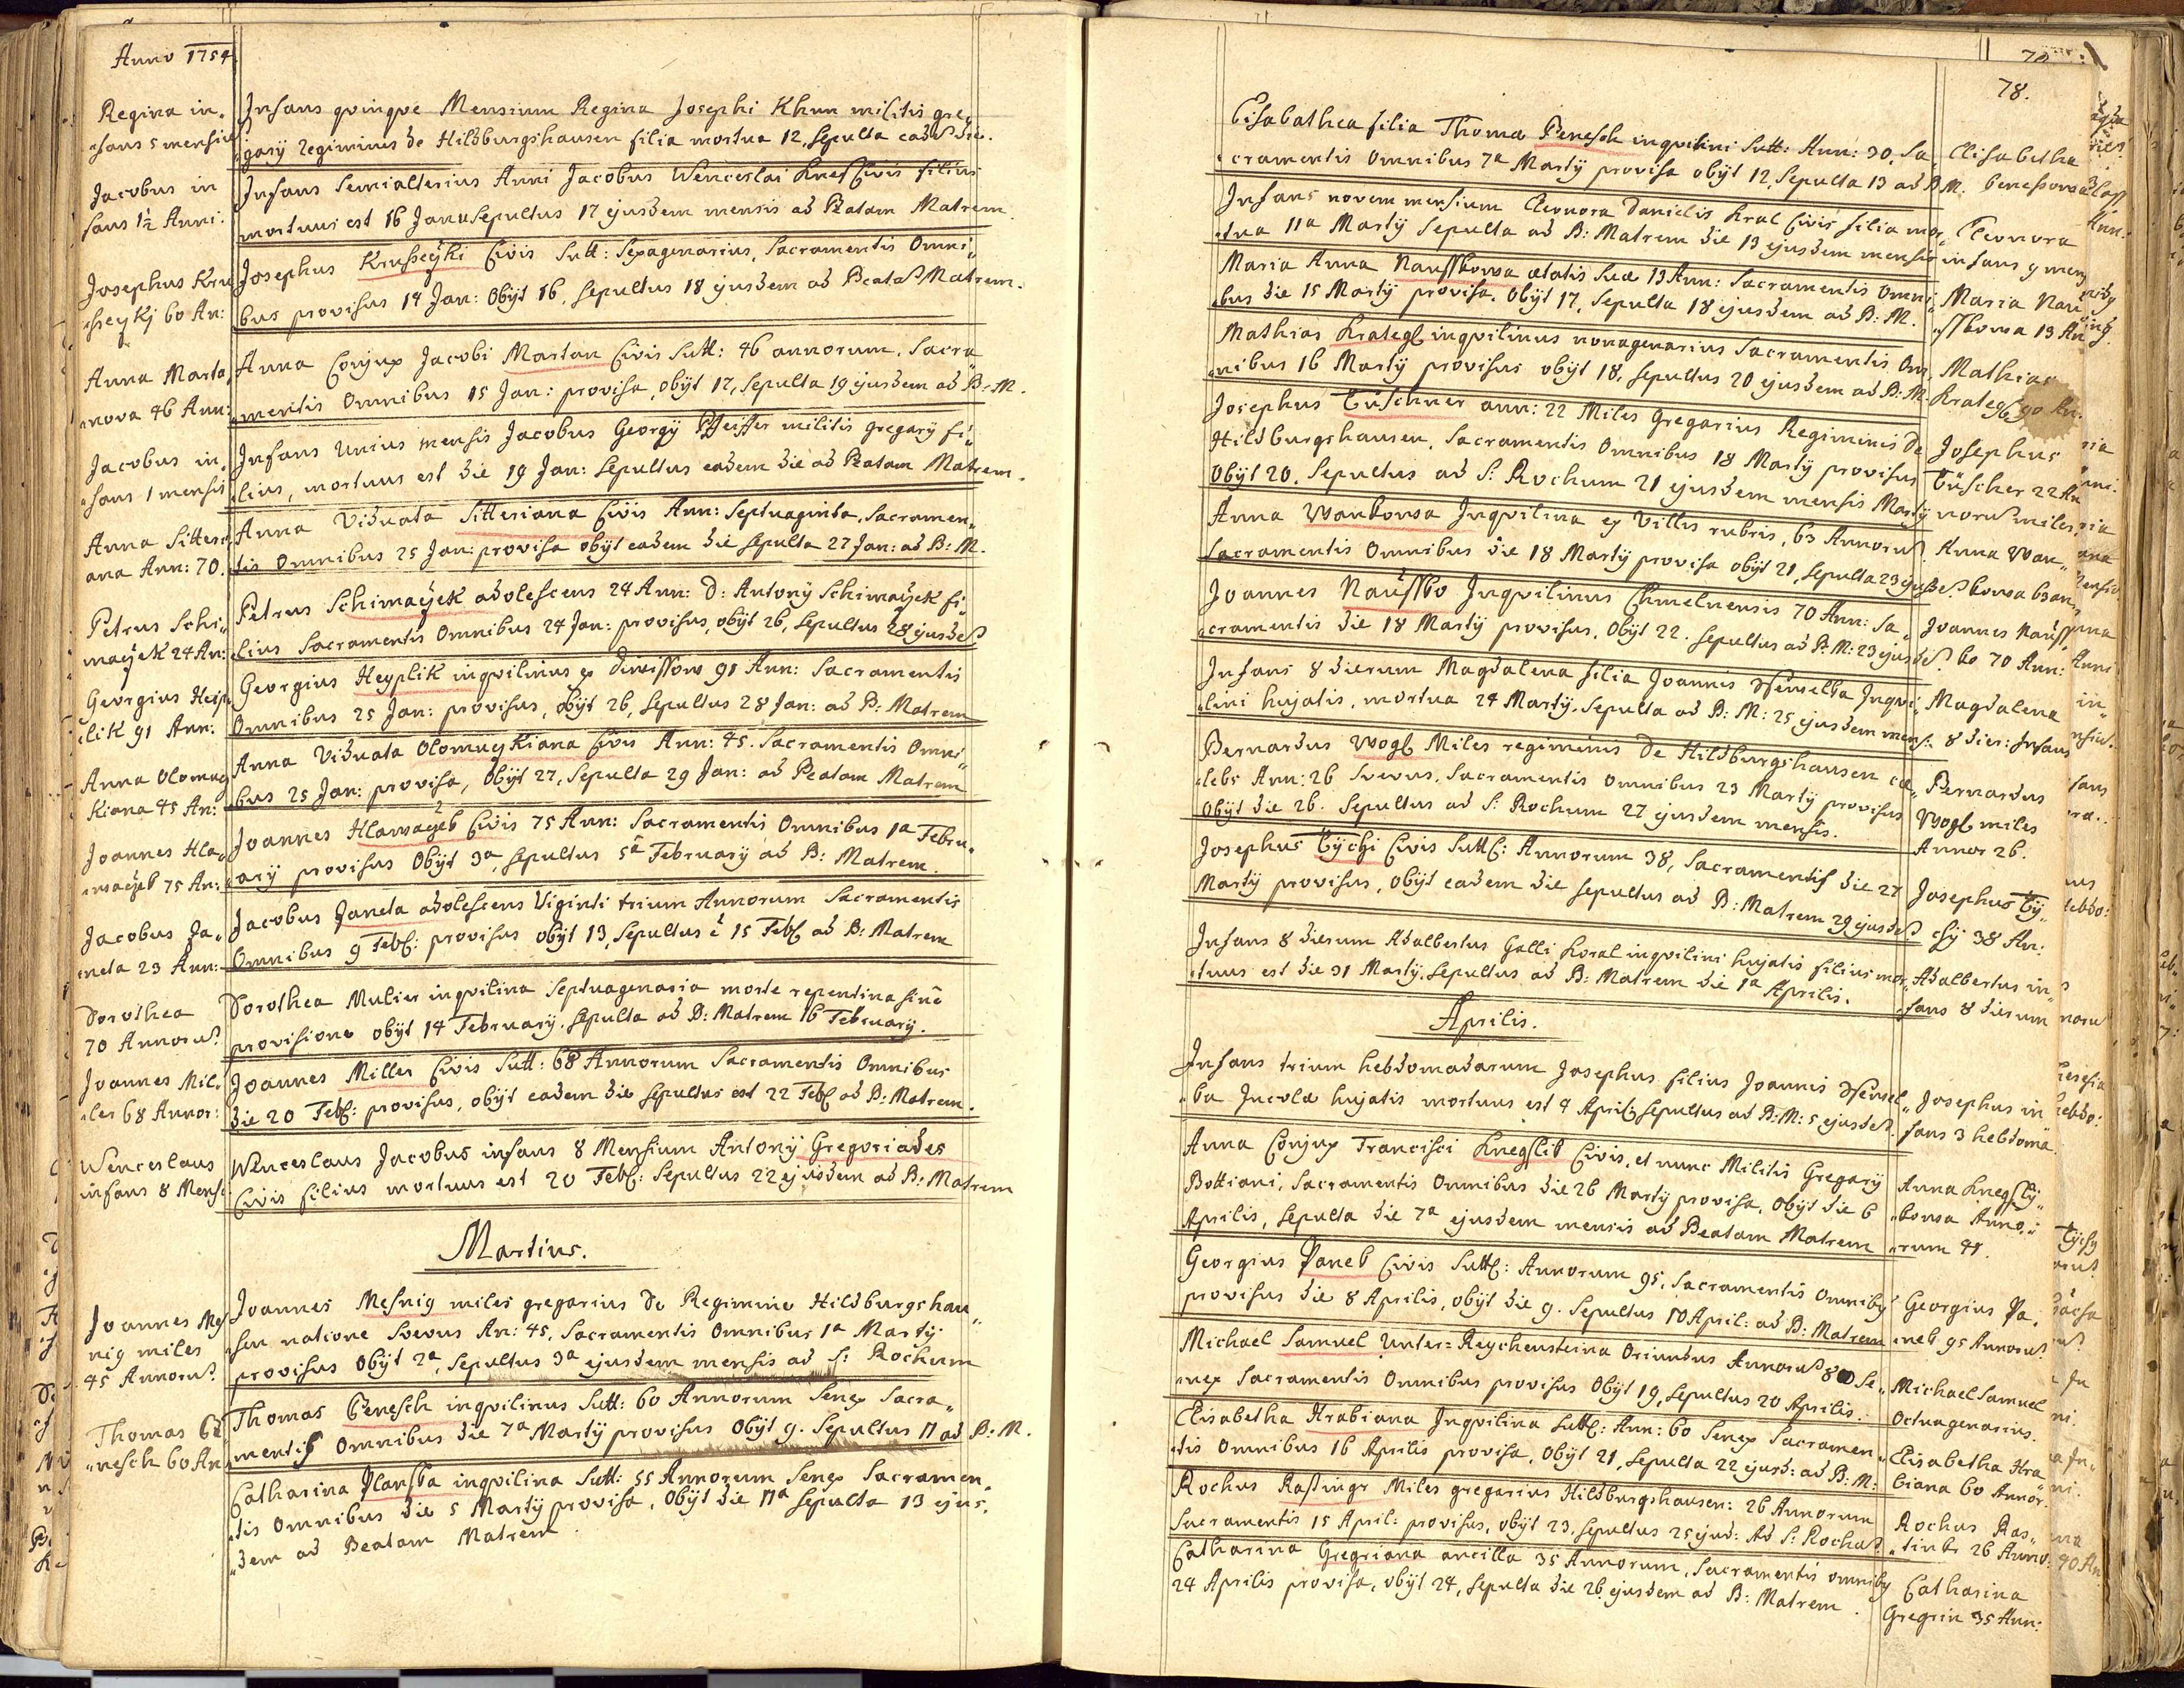 Anno 1754
Regina in„
„fans 5 mensiũ
Infans qvinqve Mensium Regina Josephi Khun militis gre„
„garÿ regiminis de Hildburgshausen filia mortua 12, sepulta eadẽ die.
Jacobus in
fans 1½ Anni.
Infans Semialterius Anni Jacobus Wenceslai Knes Civis filius
mortuus est 16 Janu Sepultus 17 ejusdem mensis ad Beatam Matrem.
Josephus Kru
„sseyKj 60 An:
Josephus Krusseÿki Civis Sutt: Sexagenarius, Sacramentis Omni„
bus provisus 14 Jan: Obÿt 16, sepultus 18 ejusdem ad Beatã Matrem.
Anna Marta„
„nova 46 Ann:
Anna Conjux Jacobi Martan Civis Sutt: 46 annorum, Sacra„
„mentis Omnibus 15 Jan: provisa, obÿt 17, sepulta 19 ejusdem ad B: M.
Jacobus in„
„fans 1 mensis
Infans Unius mensis Jacobus Georgÿ Pfeiffer militis gregarÿ fi„
„lius, mortuus est die 19 Jan: Sepultus eadem die ad Beatam Matrem.
Anna Sitteri„
ana Ann: 70.
Anna Viduata Sitteriana Civis Ann: Septuaginta, Sacramen„
tis Omnibus 25 Jan: provisa obÿt eadem die sepulta 27 Jan: ad B: M.
Petrus Schi„
maÿeK 24 An:
Petrus SchimaÿeK adolescens 24 Ann: D: Antonÿ SchimaÿeK fi„
„lius Sacramentis Omnibus 24 Jan: provisus, obÿt 26, Sepultus 28 ejusdẽ
Georgius Heip„
„liK 91 Ann:
Georgius HeypliK inqvilinus ex Diwissow 91 Ann: Sacramentis
Omnibus 25 Jan: provisus, obÿt 26, sepultus 28 Jan: ad B: Matrem
Anna Olomuc
Kiana 45 An:
Anna Viduata OlomucKiana Civis Ann: 45. Sacramentis Omni„
bus 25 Jan: provisa, Obÿt 27, Sepulta 29 Jan: ad Beatam Matrem
Joannes Hla„
„waÿek 75 An:
Joannes Hlawaÿek Civis 75 Ann: Sacramentis Omnibus 1a Febru„
„arÿ provisus Obÿt 3a, sepultus 5a Februarÿ ad B: Matrem.
Jacobus Ja„
„neta 23 Ann:
Jacobus Janeta adolescens Viginti trium Annorum Sacramentis
Omnibus 9 Feb: provisus obÿt 13, Sepultus ẽ 15 Feb ad B: Matrem
Dorothea
70 Annorũ
Dorothea Mulier inqvilina Septuagenaria morte repentina sine
provisione obÿt 14 Februarÿ. Sepulta ad B: Matrem 16 Februarÿ.
Joannes Mil„
„ler 68 Annor:
Joannes Miller Civis Sutt: 68 Annorum Sacramentis Omnibus
die 20 Feb: provisus, obÿt eadem die sepultus est 22 Feb ad B: Matrem.
Wenceslaus
infans 8 Mens:
Wenceslaus Jacobus infans 8 Mensium Antonÿ Gregoriades
Civis filius mortuus est 20 Feb: sepultus 22 ejusdem ad B: Matrem
Martius.
Joannes Mes
nig miles
45 Annorũ
Joannes Mesnig miles gregarius de Regimine Hildburgshau„
„sen natione Svevus An: 45, Sacramentis Omnibus 1a Martÿ
provisus Obÿt 2a, sepultus 3a ejusdem mensis ad S: Rochum
Thomas Be„
„nesch 60 An
Thomas Benesch inqvilinus Sutt: 60 Annorum Senex Sacra„
„mentis Omnibus die 7a Martÿ provisus Obÿt 9. Sepultus 11 ad B: M.
Catharina Planska inqvilina Sutt: 55 Annorum Senex Sacramen„
„tis Omnibus die 5 Martÿ provisa, Obÿt die 11a sepulta 13 ejus„
„dem ad Beatam Matrem.
78.
Elsabethea filia Thomæ Benesch inqvilini Sutt: Ann: 30, Sa„
„cramentis Omnibus 7a Martÿ provisa obÿt 12, Sepulta 13 ad B M.
Elisabetha
Benessowa
Infans novem mensium Eleonora Danielis Kral Civis filia mor„
„tua 11a Martÿ Sepulta ad B: Matrem die 13 ejusdem mensis
Eleonora
infans 9 men
Maria Anna Nausskowa ætatis suæ 13 Ann: Sacramentis Omni„
„bus die 15 Martÿ provisa. Obÿt 17, Sepulta 18 ejusdem ad B: M.
Maria Nau„
„sskowa 13 An
Mathias Krategl inqvilinus nonagenarius Sacramentis Om„
„nibus 16 Martÿ provisus obÿt 18, sepultus 20 ejusdem ad B: M.
Mathias
Krategl 90 An:
Josephus Tüschner ann: 22 Miles Gregarius Regiminis De
Hildburgshausen, Sacramentis Omnibus 18 Martÿ provisus
Obÿt 20. Sepultus ad S: Rochum 21 ejusdem mensis Martÿ
Josephus
Tüscher 22 An
norũ miles.
Anna Wankowa Inqvilina ex Villis rubris, 63 Annorũ
Sacramentis Omnibus die 18 Martÿ provisa obÿt 21, sepulta 23 ejusdẽ
Anna Wan„
kowa 63 an
Joannes Naussko Inqvilinus Chmelnensis 70 Ann: Sa„
„cramentis die 18 Martÿ provisus, Obÿt 22. sepultus ad B: M: 23 ejusdẽ
Joannes Nauss
ko 70 Ann:
Infans 8 dierum Magdalena filia Joannis Wewelka Inqvi„
„lini hujatis, mortua 24 Martÿ, Sepulta ad B: M: 25 ejusdem mens:
Magdalena
8 dier: Infans
Bernardus Wogl Miles regiminis De Hildburgshausen cæ„
„lebs Ann: 26 Svevus, Sacramentis Omnibus 23 Martÿ provisus
Obÿt die 26. Sepultus ad S: Rochum 27 ejusdem mensis.
Bernardus
Wogl miles
Annor 26.
Josephus Tÿchi Civis Sutt: Annorum 38, Sacramentis die 27
Martÿ provisus, Obÿt eadem die sepultus ad B: Matrem 29 ejusdẽ
Josephus Tÿ„
chÿ 38 An:
Infans 8 dierum Adalbertus Galli Koral inqvilini hujatis filius mor„
„tuus est die 31 Martÿ. Sepultus ad B: Matrem die 1a Aprilis.
Adalbertus in„
fans 8 dierum
Aprilis.
Infans trium hebdomadarum Josephus filius Joannis Wewel„
„ka Incolæ hujatis mortuus est 4 April, sepultus ad B: M: 5 ejusdẽ.
Josephus in
fans 3 hebdoma
Anna Conjux Francisci Knezslik Civis, et nunc Militis Gregarÿ
Bottiani, Sacramentis Omnibus die 26 Martÿ provisa, Obÿt die 6
Aprilis, Sepulta die 7a ejusdem mensis ad Beatam Matrem
Anna Knezslÿ„
„kowa Anno„
„rum 41.
Georgius Vanek Civis Sutt: Annorum 95, Sacramentis Omnibꝰ
provisus die 8 Aprilis, obÿt die 9. Sepultus 10 April: ad B: Matrem
Georgius Va„
„nek 95 Annorũ
Michael Samuel Unter-Reychensteina Oriundus Annorũ 80 Se„
„nex Sacramentis Omnibus provisus Obÿt 19, Sepultus 20 Aprilis.
Michael Samuel
Octuagenarius.
Elisabetha Hrabiana Inqvilina Sutt: Ann: 60 Senex Sacramen„
„tis Omnibus 16 Aprilis provisa, Obÿt 21, sepulta 22 ejusd: ad B: M:
Elisabetha Hra
biana 60 Annor.
Rochus Rastingr Miles gregarius Hildburgshausen: 26 Annorum
Sacramentis 15 April: provisus, obÿt 23, sepultus 25 ejusd: Ad S: Rochũ
Rochus Ras„
„tinkr 26 Anno:
Catharina Gregriana ancilla 35 Annorum, Sacramentis omnibꝰ
24 Aprilis provisa, obÿt 24, sepulta die 26 ejusdem ad B: Matrem.
Catharina
Gregrin 35 Ann: